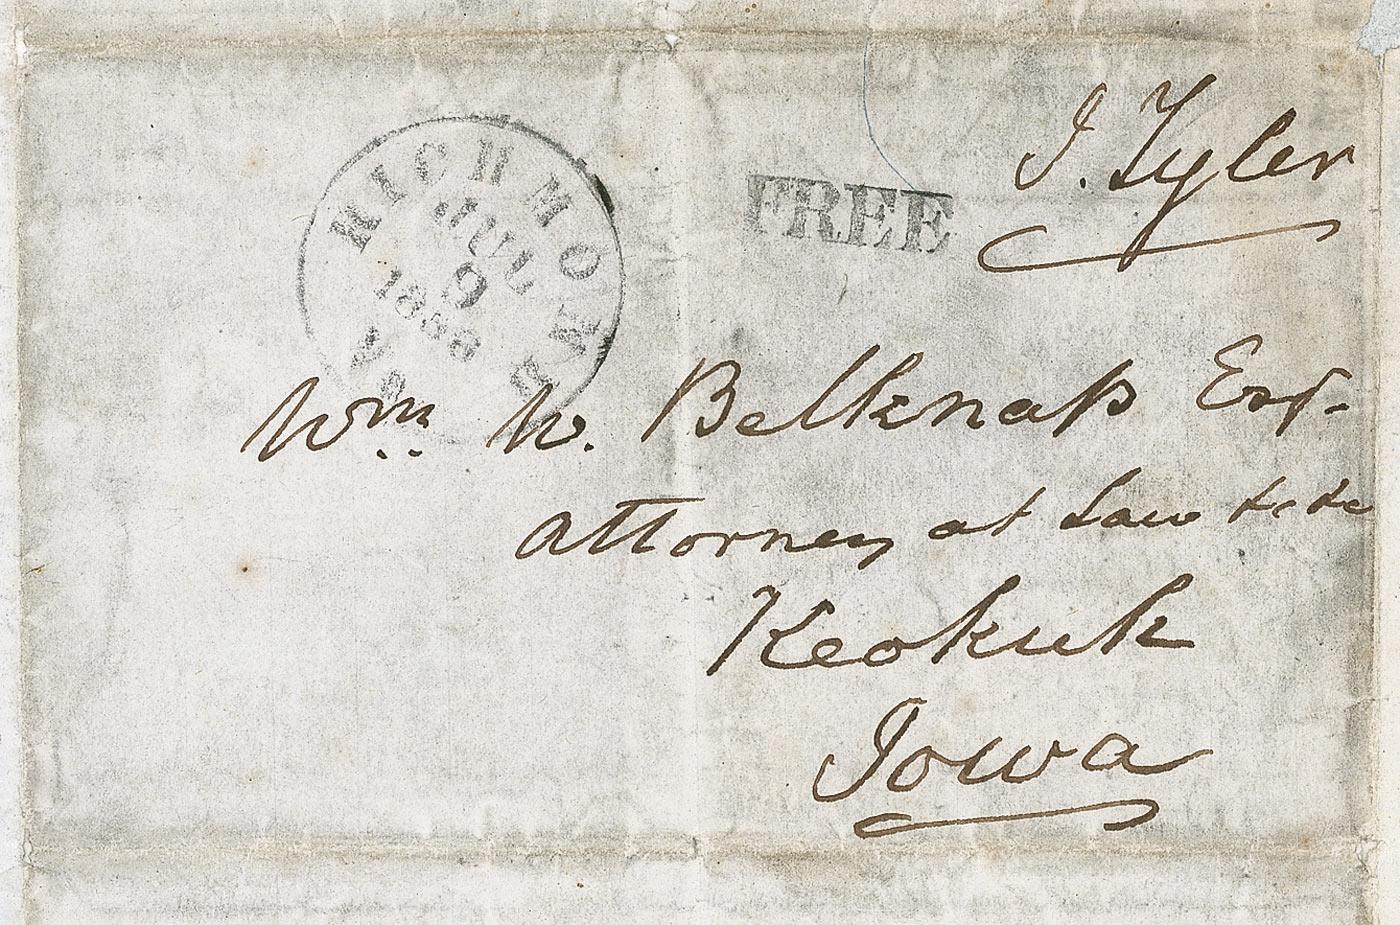 J. Tyler
FREE
RICHMOND Va
JUL
9
1858
Wm W. Belknap Esq.
Attorney at Law &c &c
Keokuk
Iowa